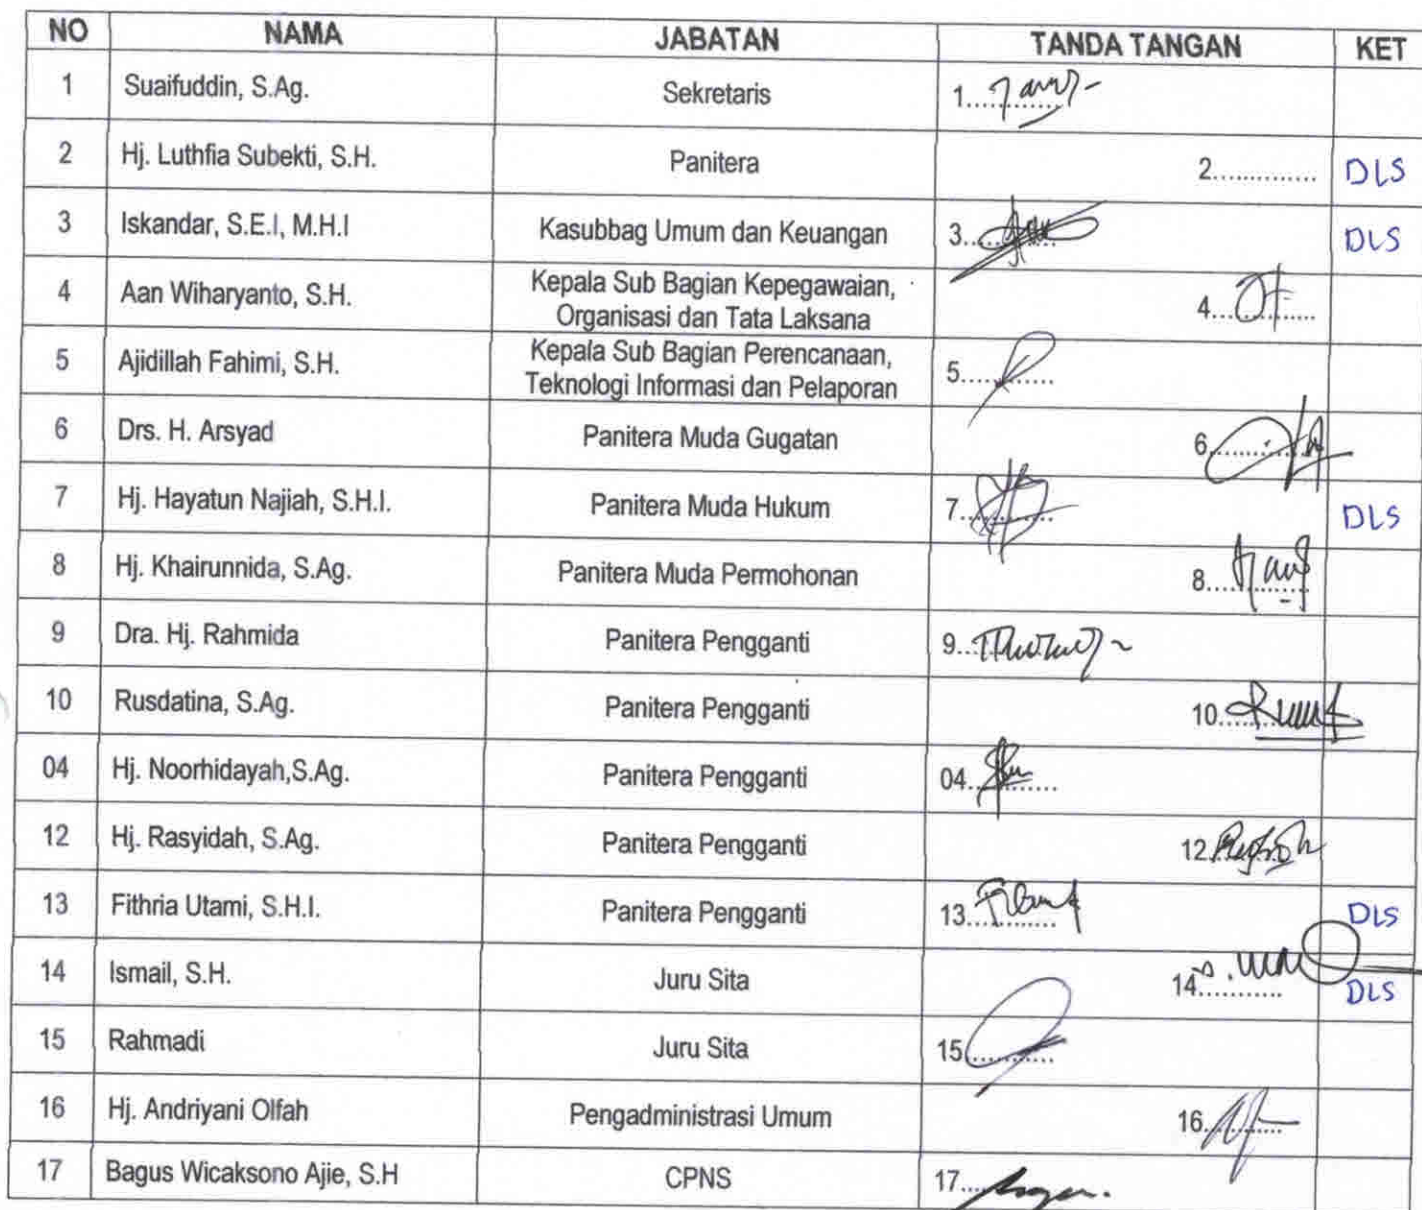 NO NAMA JABATAN TANDA TANGAN KET
1 Suaifuddin, S.Ag. Sekretaris 1............
2 Hj. Luthfia Subekti, S.H. Panitera 2............. DLS
3 Iskandar, S.E.I, M.H.I Kasubbag Umum dan Keuangan 3............ DLS
4 Aan Wiharyanto, S.H. Kepala Sub Bagian Kepegawaian,
Organisasi dan Tata Laksana 4.............
5 Ajidillah Fahimi, S.H. Kepala Sub Bagian Perencanaan,
Teknologi Informasi dan Pelaporan 5............
6 Drs. H. Arsyad Panitera Muda Gugatan 6.............
7 Hj. Hayatun Najiah, S.H.I. Panitera Muda Hukum 7............ DLS
8 Hj. Khairunnida, S.Ag. Panitera Muda Permohonan 8.............
9 Dra. Hj. Rahmida Panitera Pengganti 9............
10 Rusdatina, S.Ag. Panitera Pengganti 10...........
04 Hj. Noorhidayah,S.Ag. Panitera Pengganti 04............
12 Hj. Rasyidah, S.Ag. Panitera Pengganti 12...........
13 Fithria Utami, S.H.I. Panitera Pengganti 13............ DLS
14 Ismail, S.H. Juru Sita 14........... DLS
15 Rahmadi Juru Sita 15............
16 Hj. Andriyani Olfah Pengadministrasi Umum 16...........
17 Bagus Wicaksono Ajie, S.H CPNS 17............